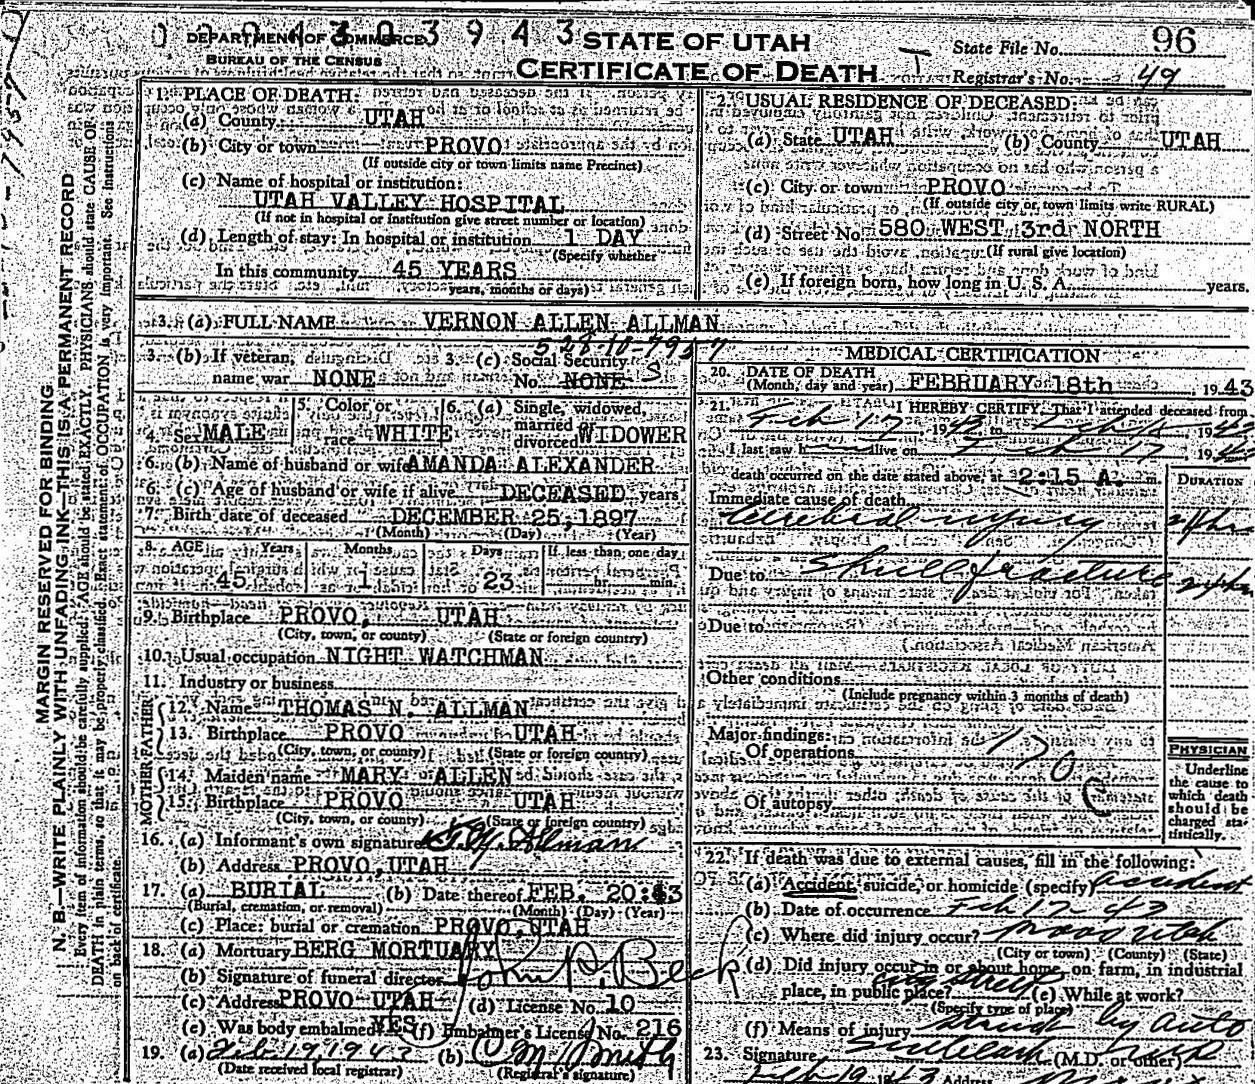 DEPARTMENT OF COMMERCE
BUREAU OF THE CENSUS
3 9 4 3
STATE OF UTAH
CERTIFICATE OF DEATH
State File No. 96
Registrar's No. 49
MARGIN RESERVED FOR BINDING
N. B.—WRITE PLAINLY WITH UNFADING INK—THIS IS A PERMANENT RECORD
Every item of information should be carefully supplied. AGE should be stated EXACTLY. PHYSICIANS should state CAUSE OF
DEATH in plain terms, so that it may be properly classified. Exact statement of OCCUPATION is very important. See instructions
on back of certificate.
1. PLACE OF DEATH:
(a) County UTAH
(b) City or town PROVO
(If outside city or town limits name Precinct)
(c) Name of hospital or institution:
UTAH VALLEY HOSPITAL
(If not in hospital or institution give street number or location)
(d) Length of stay: In hospital or institution 1 DAY
(Specify whether
In this community 45 YEARS
years, months or days)
2. USUAL RESIDENCE OF DECEASED:
(a) State UTAH (b) County UTAH
(c) City or town PROVO
(If outside city or town limits write RURAL)
(d) Street No. 580 WEST 3rd NORTH
(If rural give location)
(e) If foreign born, how long in U. S. A. years.
3. (a) FULL NAME VERNON ALLEN ALLMAN
528-10-7957
3. (b) If veteran, 3. (c) Social Security
name war NONE No. NONE S
4. Sex MALE 5. Color or race WHITE 6. (a) Single, widowed, married or divorced WIDOWER
6. (b) Name of husband or wife AMANDA ALEXANDER
6. (c) Age of husband or wife if alive DECEASED years
7. Birth date of deceased DECEMBER 25, 1897
(Month) (Day) (Year)
8. AGE Years Months Days If less than one day
45 1 23 hr. min.
9. Birthplace PROVO, UTAH
(City, town, or county) (State or foreign country)
10. Usual occupation NIGHT WATCHMAN
11. Industry or business
FATHER
12. Name THOMAS N. ALLMAN
13. Birthplace PROVO UTAH
(City, town, or county) (State or foreign country)
MOTHER
14. Maiden name MARY ALLEN
15. Birthplace PROVO UTAH
(City, town, or county) (State or foreign country)
16. (a) Informant's own signature Allman
(b) Address PROVO, UTAH
17. (a) BURIAL (b) Date thereof FEB. 20 43
(Burial, cremation, or removal) (Month) (Day) (Year)
(c) Place: burial or cremation PROVO, UTAH
18. (a) Mortuary BERG MORTUARY
(b) Signature of funeral director John P. Beck
(c) Address PROVO UTAH (d) License No. 10
(e) Was body embalmed YES (f) Embalmer's License No. 216
19. (a) Feb 19 1943 (b) Smith
(Date received local registrar) (Registrar's signature)
MEDICAL CERTIFICATION
20. DATE OF DEATH
(Month, day and year) FEBRUARY 18th 1943
21. I HEREBY CERTIFY, That I attended deceased from
Feb 17 1943 to Feb 1943
I last saw h alive on Feb 17 1943
death occurred on the date stated above, at 2:15 A. m.
DURATION
Immediate cause of death
Cerebral injury
Due to Skull fracture
Due to
Other conditions
(Include pregnancy within 3 months of death)
Major findings:
Of operations
170 C
Of autopsy
PHYSICIAN
Underline
the cause to
which death
should be
charged sta-
tistically.
22. If death was due to external causes, fill in the following:
(a) Accident, suicide, or homicide (specify) accident
(b) Date of occurrence Feb 17-43
(c) Where did injury occur? Provo Utah
(City or town) (County) (State)
(d) Did injury occur in or about home, on farm, in industrial
place, in public place? city street (e) While at work?
(Specify type of place)
(f) Means of injury struck by auto
23. Signature (M.D. or other)
Feb 19 1943 Address